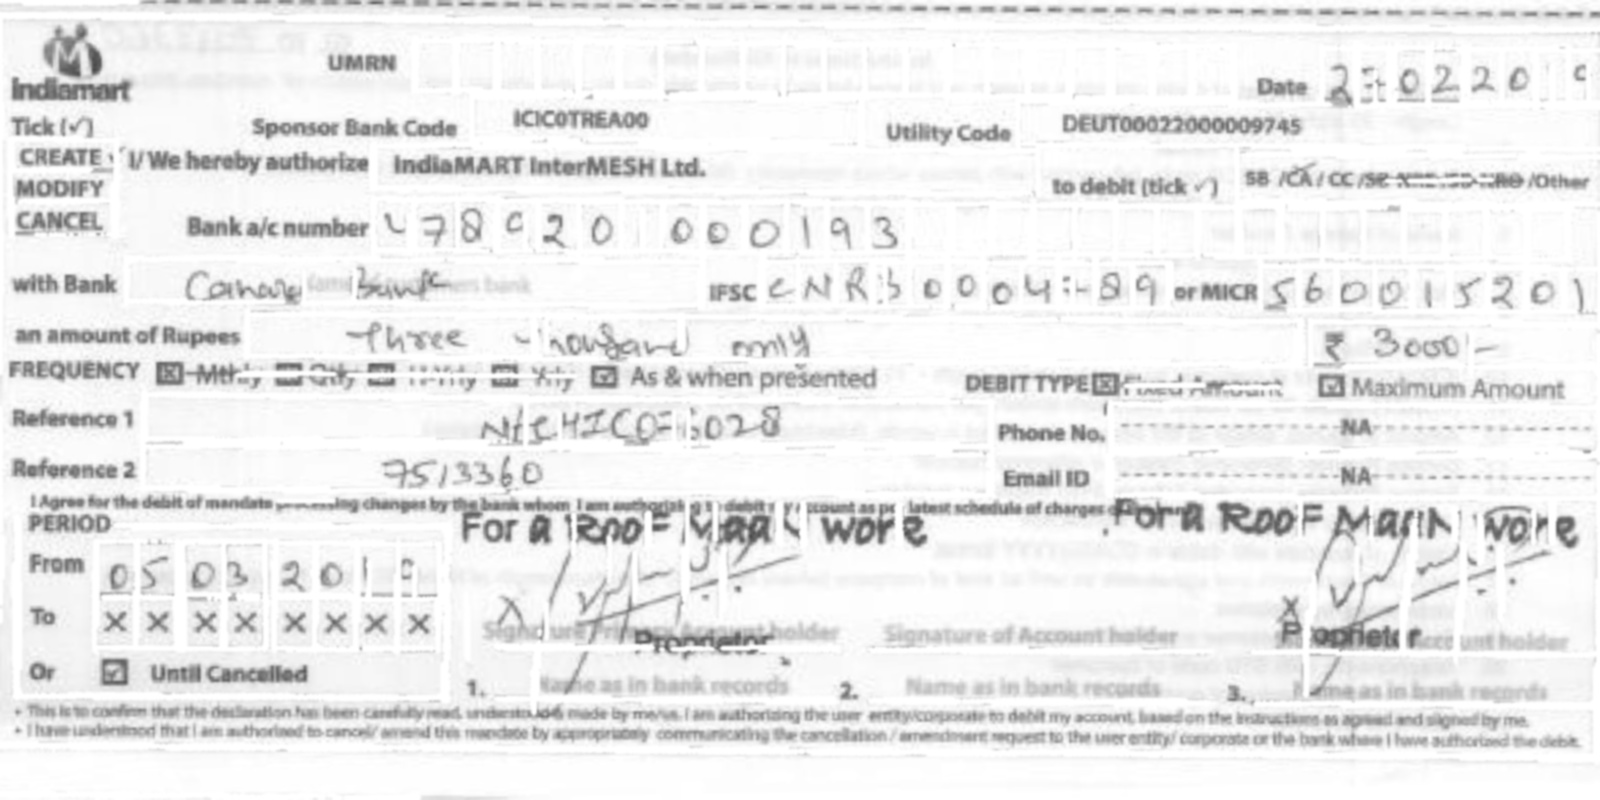 indiamart
UMRN
Date 2 022019
Tick (✓)
Sponsor Bank Code ICIC0TREA00 Utility Code DEUT00022000009745
CREATE I/ We hereby authorize IndiaMART InterMESH Ltd. to debit (tick ✓) SB /CA / CC / /Other
MODIFY
CANCEL
Bank a/c number 000193
with Bank Canara Bank IFSC or MICR 560015201
an amount of Rupees Three Thousand only ₹ 3000/-
FREQUENCY Mthly Qtly H-Yrly Yrly As & when presented DEBIT TYPE Fixed Amount Maximum Amount
Reference 1 Phone No. NA
Reference 2 7513360 Email ID NA
I Agree for the debit of mandate processing changes by the bank whom I am authorizing to debit my account as per latest schedule of charges
PERIOD
From 05 03 2019
To X X X X X X X X
Or Until Cancelled
For a Roof wore
For a Roof wore
Signature Primary Account holder Signature of Account holder Account holder
Proprietor Proprietor
1. Name as in bank records 2. Name as in bank records 3. Name as in bank records
• This is to confirm that the declaration has been carefully read, understood & made by me/us. I am authorizing the user entity/corporate to debit my account, based on the instructions as agreed and signed by me.
• I have understood that I am authorized to cancel/ amend this mandate by appropriately communicating the cancellation / amendment request to the user entity/ corporate or the bank where I have authorized the debit.